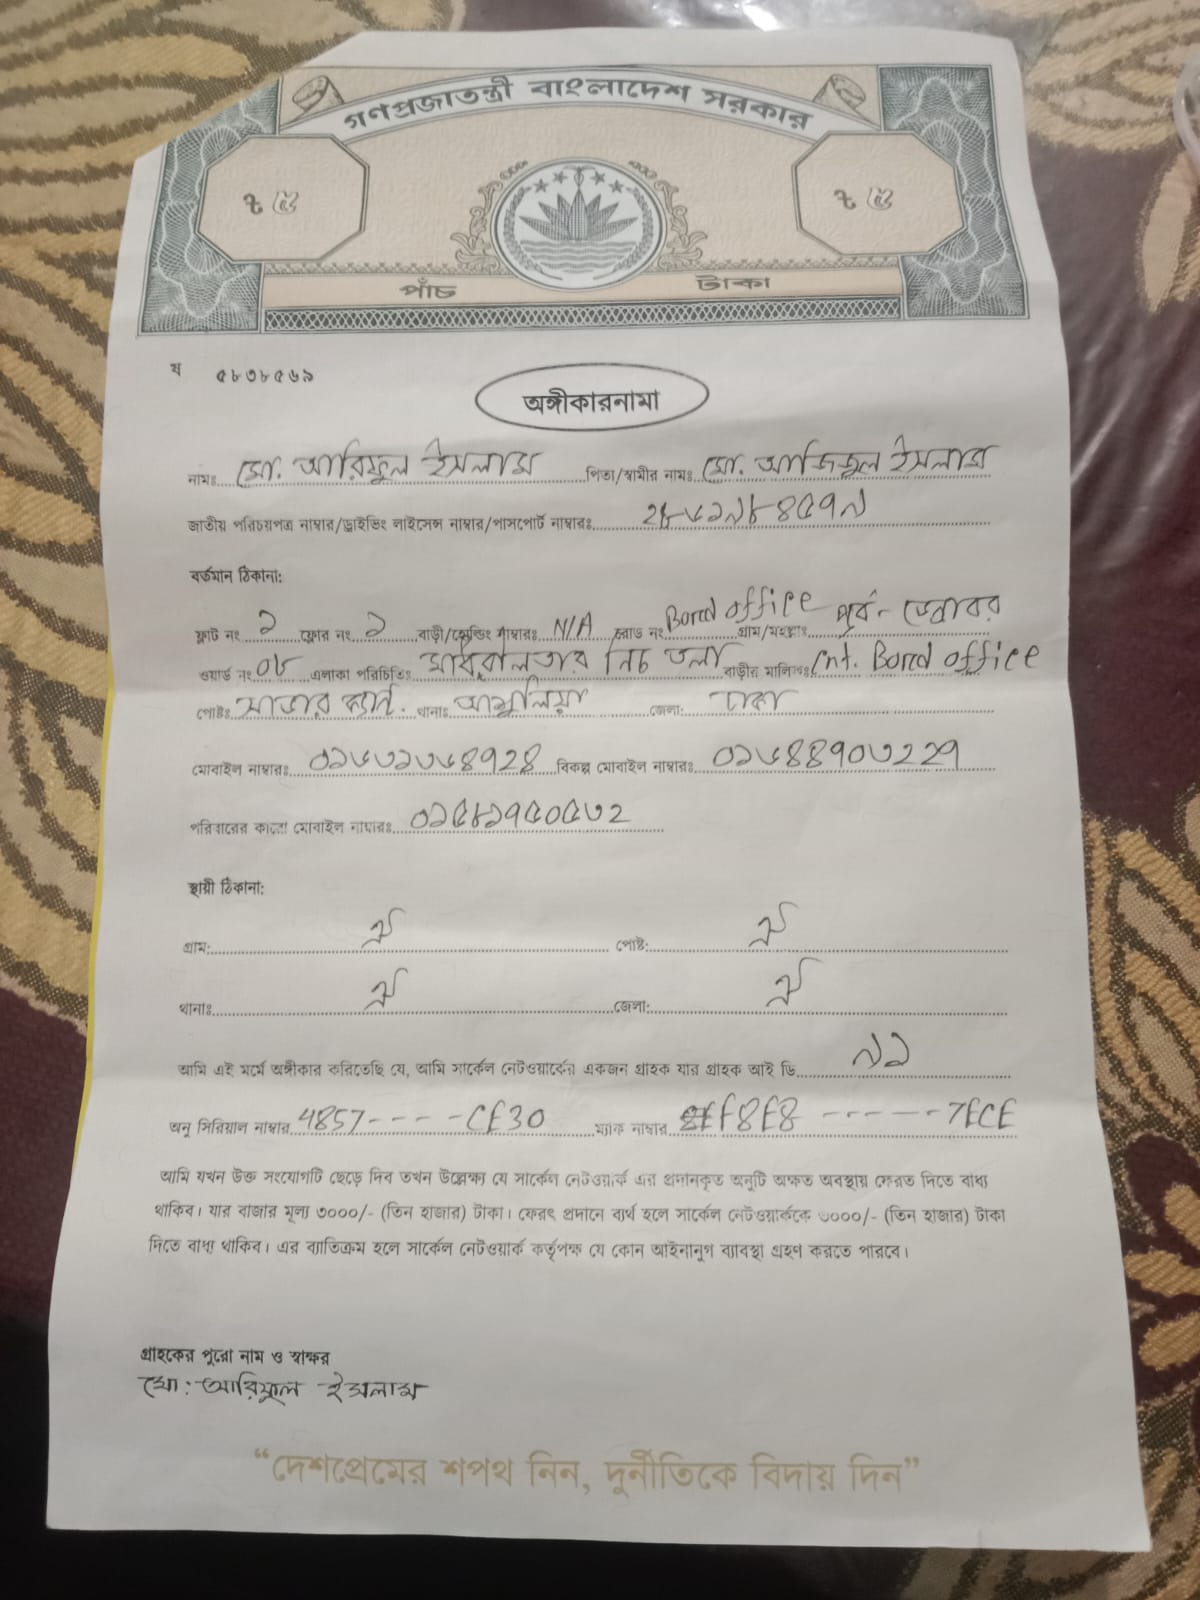 গণপ্রজাতন্ত্রী বাংলাদেশ সরকার
৳ ৫ ৳ ৫
পাঁচ টাকা
ষ ৫৮৩৮৫৬৯
অঙ্গীকারনামা
নামঃ মো. আরিফুল ইসলাম পিতা/স্বামীর নামঃ মো. আজিজুল ইসলাম
জাতীয় পরিচয়পত্র নাম্বার/ড্রাইভিং লাইসেন্স নাম্বার/পাসপোর্ট নাম্বারঃ ২৮৬১৯৮৪৫৭৯
বর্তমান ঠিকানা:
ফ্লাট নং ১ ফ্লোর নং ১ বাড়ী/হোল্ডিং নাম্বারঃ N/A রোড নং Bord office গ্রাম/মহল্লাঃ পূর্ব-
ওয়ার্ড নং ০৮ এলাকা পরিচিতিঃ নিচ তলা বাড়ীর মালিকঃ Cnt. Bord office
পোষ্টঃ সাভার ক্যান্ট. থানাঃ আশুলিয়া জেলা: ঢাকা
মোবাইল নাম্বারঃ ০১৬৩১৩৬৪৭২৪ বিকল্প মোবাইল নাম্বারঃ ০১৬৪৪৭০৩২২৭
পরিবারের কারো মোবাইল নাম্বারঃ ০১৫৮১৭৫০৫৩২
স্থায়ী ঠিকানা:
গ্রাম: ঐ পোষ্ট: ঐ
থানাঃ ঐ জেলা: ঐ
আমি এই মর্মে অঙ্গীকার করিতেছি যে, আমি সার্কেল নেটওয়ার্কের একজন গ্রাহক যার গ্রাহক আই ডি ৯১
অনু সিরিয়াল নাম্বার 4857-----CE30 ম্যাক নাম্বার F8E8 ------7ECE
আমি যখন উক্ত সংযোগটি ছেড়ে দিব তখন উল্লেক্ষ্য যে সার্কেল নেটওয়ার্ক এর প্রদানকৃত অনুটি অক্ষত অবস্থায় ফেরত দিতে বাধ্য
থাকিব। যার বাজার মূল্য ৩০০০/- (তিন হাজার) টাকা। ফেরৎ প্রদানে ব্যর্থ হলে সার্কেল নেটওয়ার্ককে ৩০০০/- (তিন হাজার) টাকা
দিতে বাধ্য থাকিব। এর ব্যাতিক্রম হলে সার্কেল নেটওয়ার্ক কর্তৃপক্ষ যে কোন আইনানুগ ব্যাবস্থা গ্রহণ করতে পারবে।
গ্রাহকের পুরো নাম ও স্বাক্ষর
মো: আরিফুল ইসলাম
“দেশপ্রেমের শপথ নিন, দুর্নীতিকে বিদায় দিন”